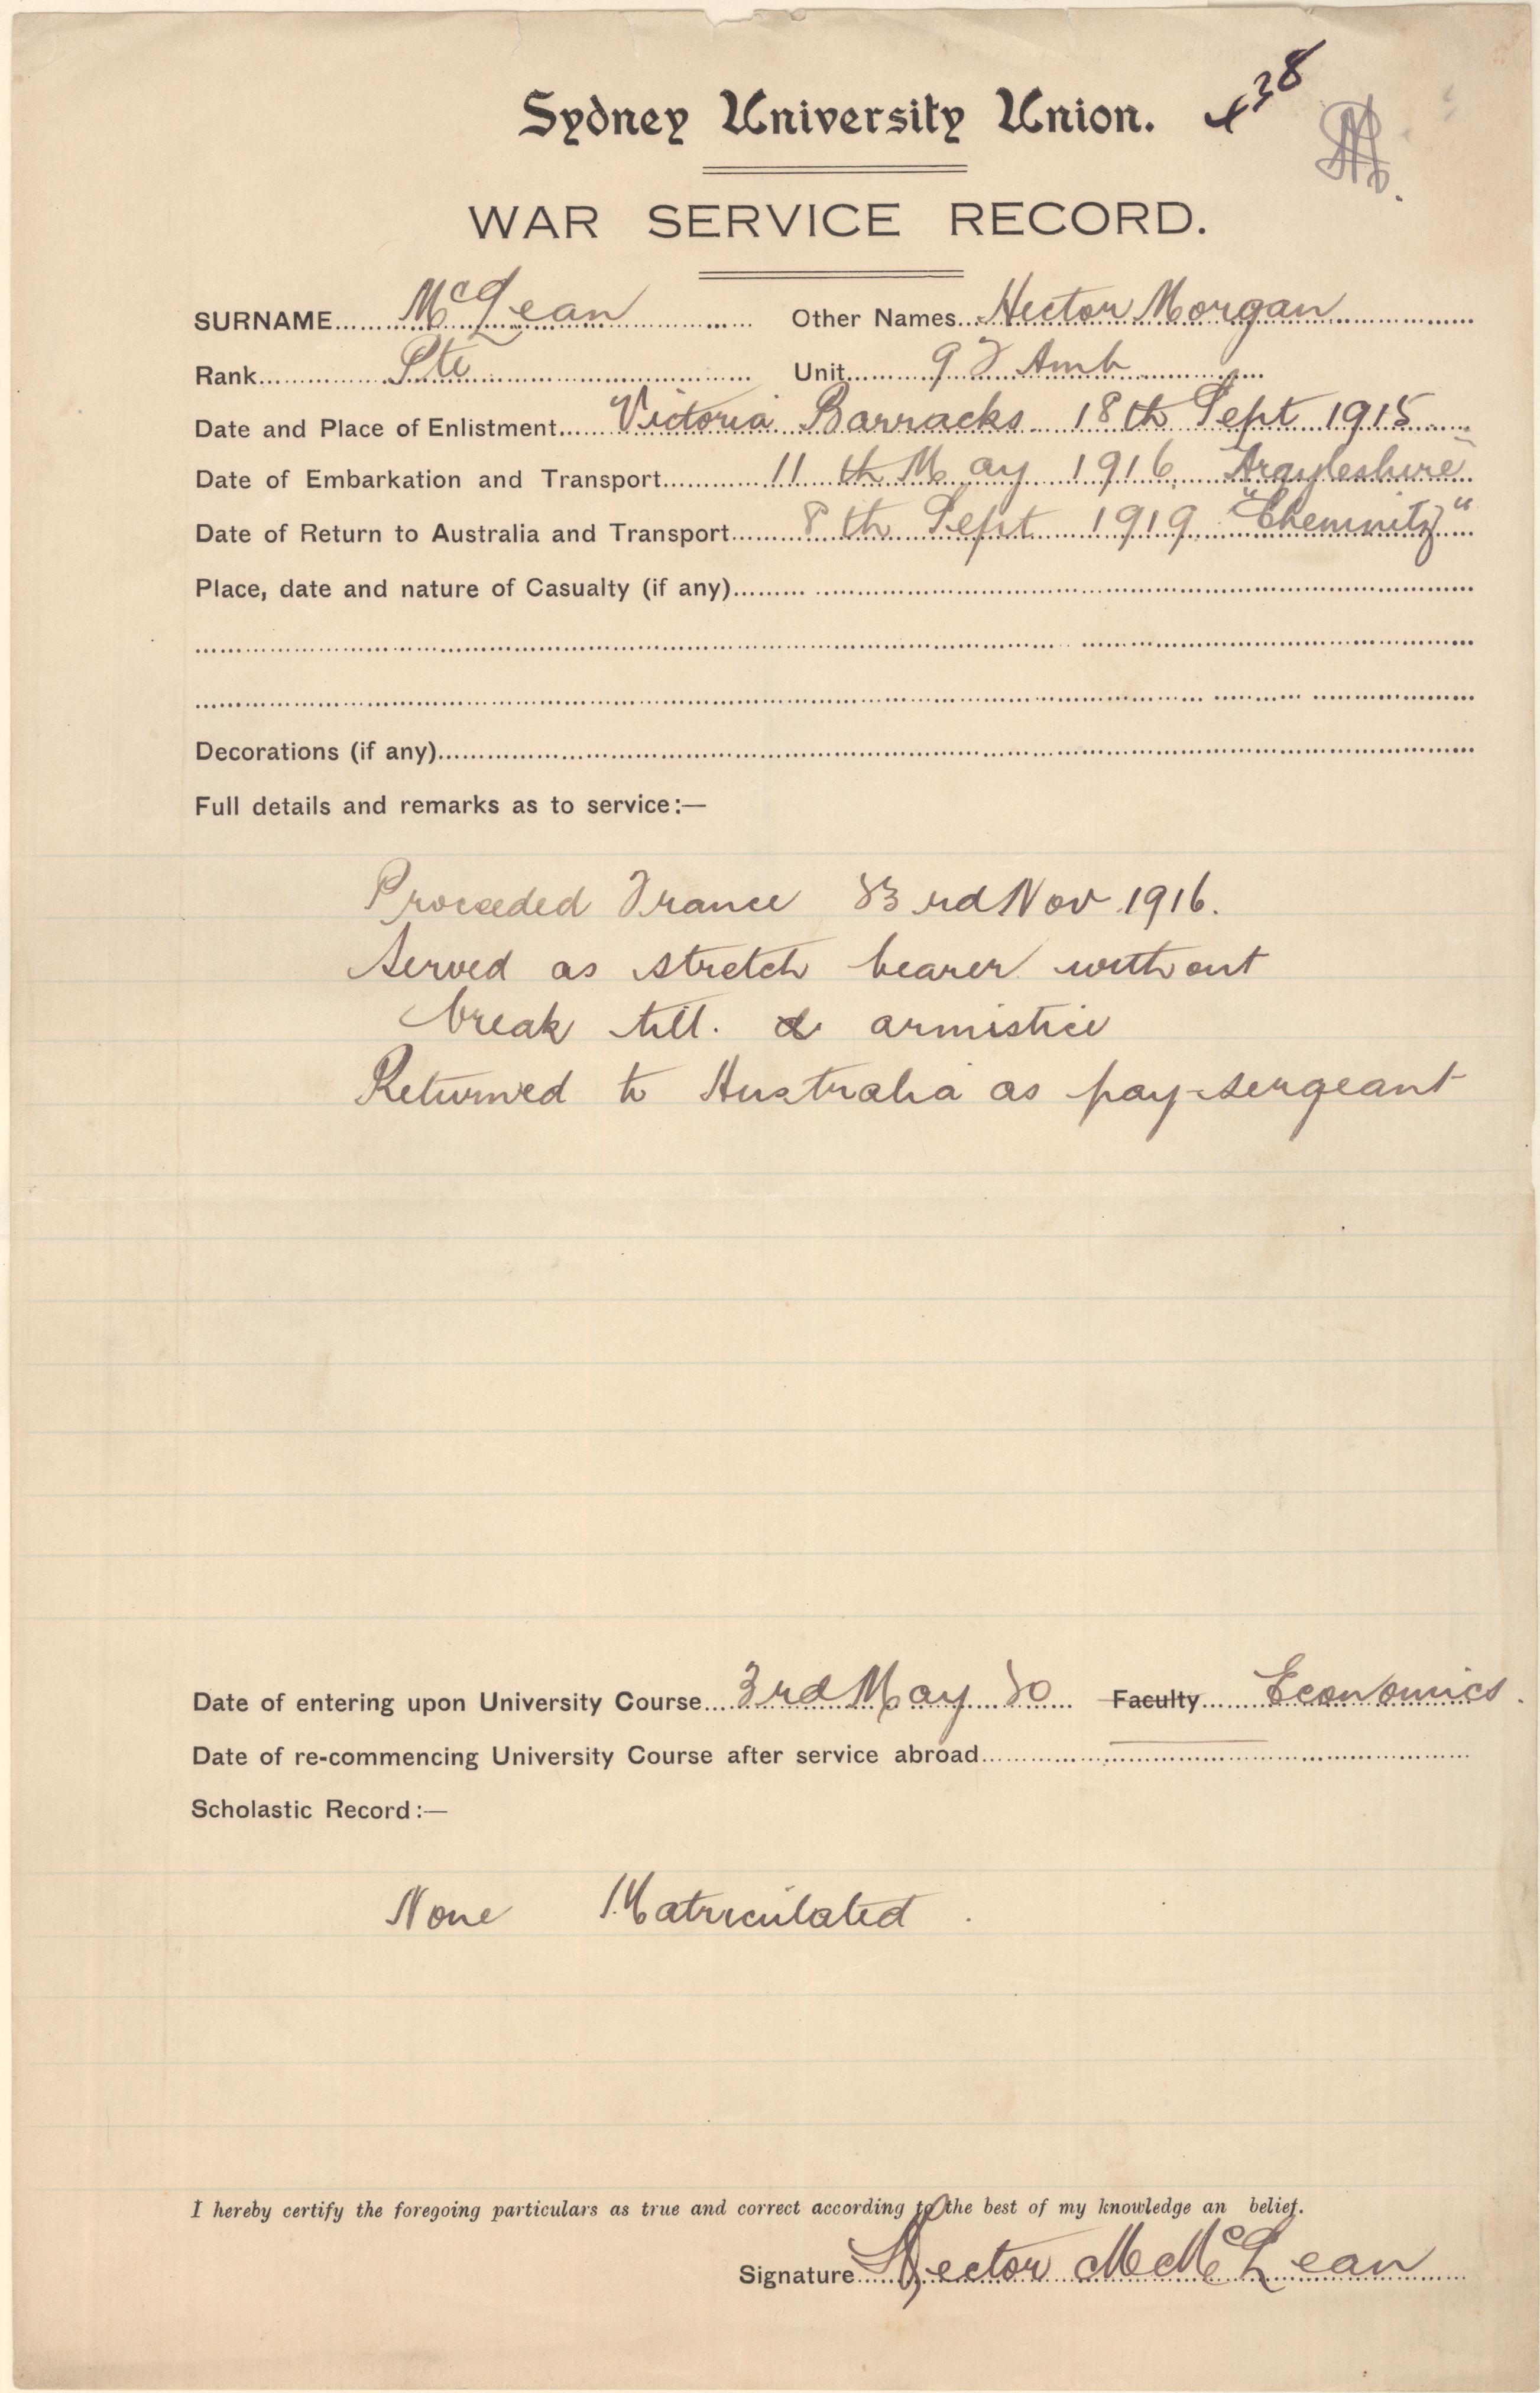 Sydney University Union. 438
WAR SERVICE RECORD.
SURNAME McLean Other Names Hector Morgan
Rank Pte Unit 9 F Amb
Date and Place of Enlistment Victoria Barracks 18th Sept 1915
Date of Embarkation and Transport 11th May 1916 "Argyleshire"
Date of Return to Australia and Transport 8th Sept 1919 "Chemnitz"
Place, date and nature of Casualty (if any)
Decorations (if any)
Full details and remarks as to service:—
Proceeded France 23rd Nov 1916.
Served as stretch bearer without
break till. armistice
Returned to Australia as pay-sergeant
Date of entering upon University Course 3rd May 20 Faculty Economics.
Date of re-commencing University Course after service abroad
Scholastic Record:—
None Matriculated.
I hereby certify the foregoing particulars as true and correct according to the best of my knowledge an belief.
Signature Hector M McLean